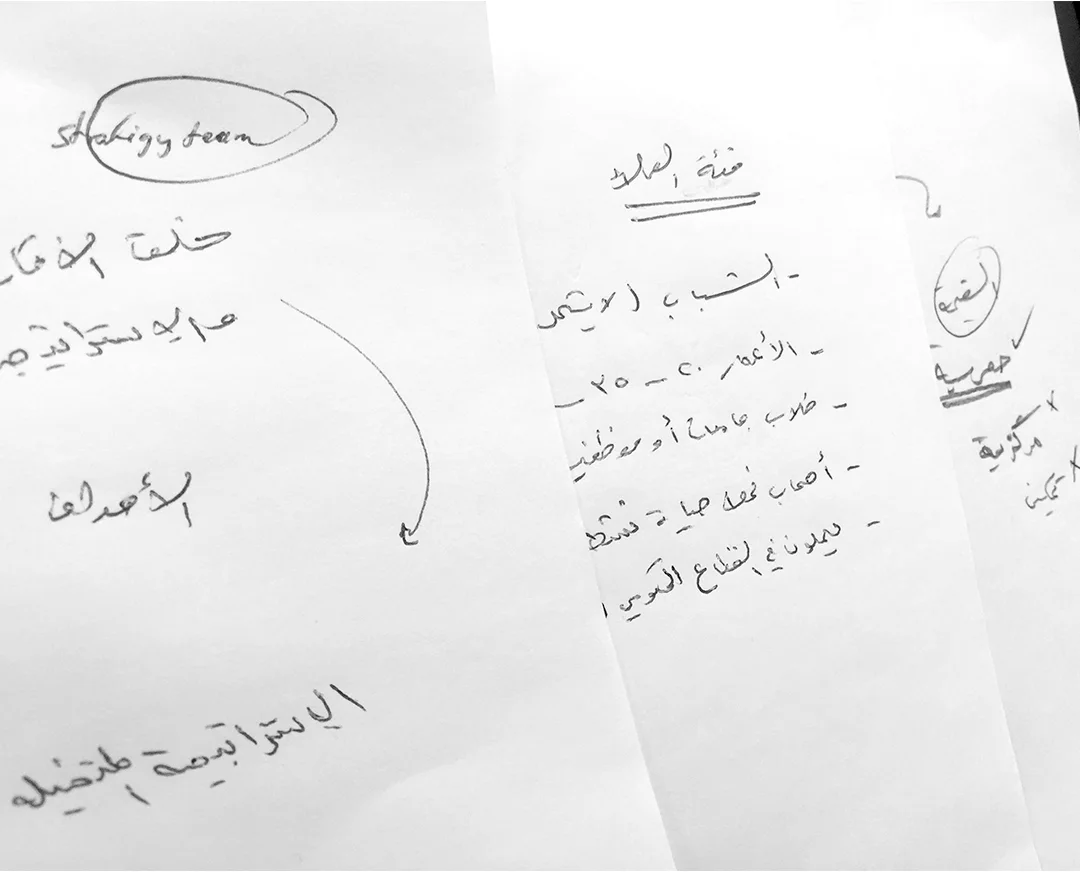 strategy team
خلق الأفكار
والاستراتيج
الأهداف
الاستراتيجية
فئة العملاء
- الشباب (لا يشمل
- الأعمار ٢٠ - ٣٥ -
- طلاب جامعات أو موظفين
- أصحاب نمط حياة نشط
- يعملون في القطاع الحكومي
القيمة
حصرية ✓
مركزية ×
تمكين ×